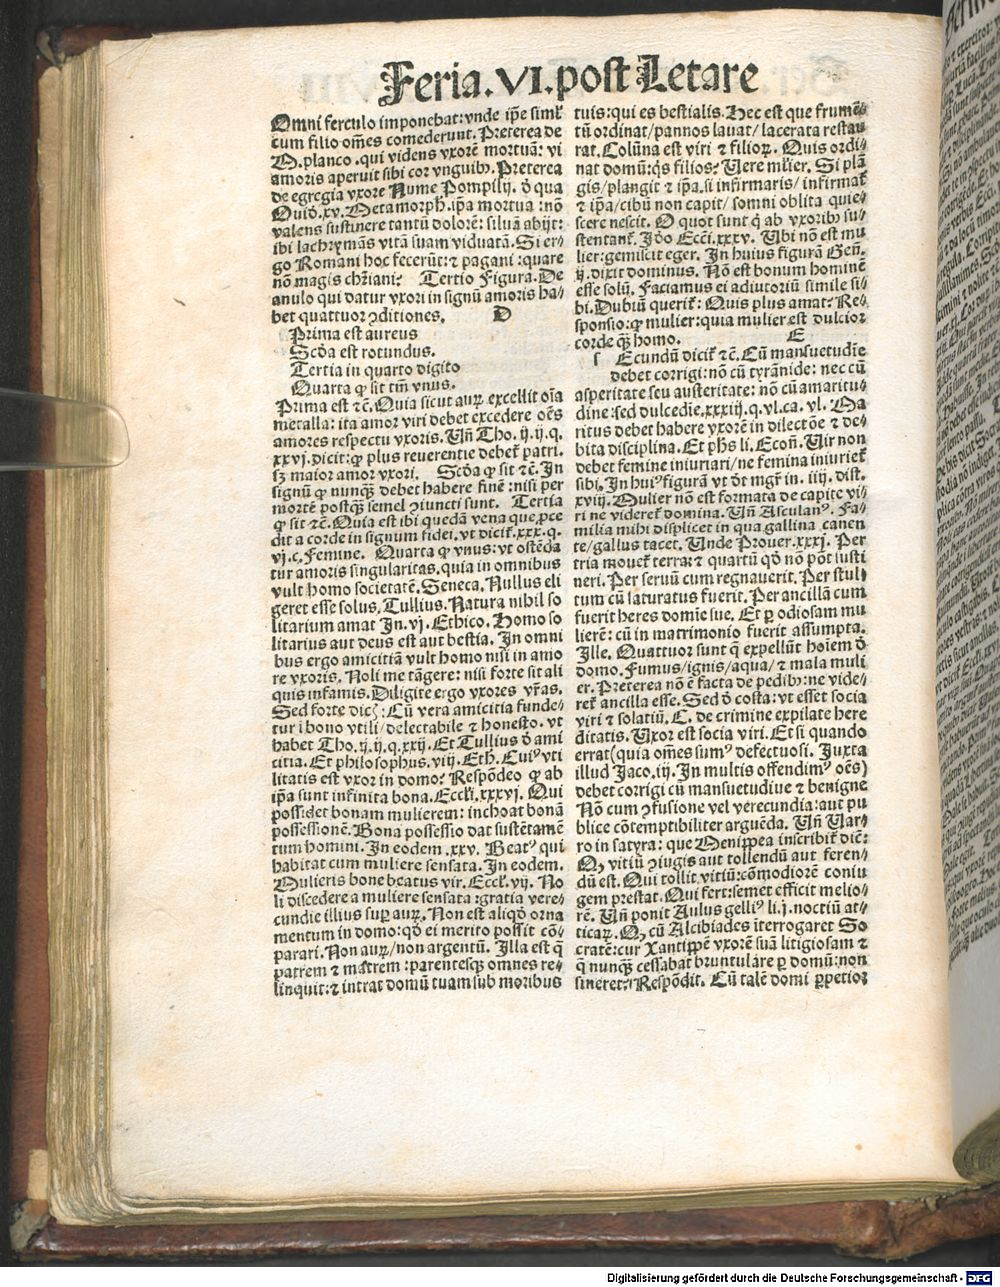 Feria.VI.post Letare
Omni ferculo imponebat: vnde ip̄e siml'
cum filio om̄es comederunt. Preterea de
M. planco . qui videns vxorē mortuā: vi
amoris aperuit sibi cor vnguibꝰ. Preterea
de egregia vxore Nume Pompilij. ð qua
Ouid̄. xv. Metamorph. ip̄a mortua : nō
valens sustinere tantū dolorē: siluā abijt:
ibi lachrymās vitā suam viduatā. Si er⸗
go Romani hoc fecerūt: ⁊ pagani : quare
nō magis ch̄iani? Tertio Figura. De
anulo qui datur vxori in signū amoris ha⸗
bet quattuor ↄditiones. D
Prima est aureus
Scd̄a est rotundus.
Tertia in quarto digito
Quarta ꝙ sit tm̄ vnus.
Prima est ⁊c̄. Quia sicut aurꝫ excellit oīa
metalla: ita amor viri debet excedere oēs
amores respectu vxoris. Vn̄ Tho. ij. ij. q.
xxvj. dicit: ꝙ plus reuerentie debet᷑ patri.
sꝫ maior amor vxori. Scd̄a ꝙ sit ⁊c̄. In
signū ꝙ nunqꝫ debet habere finē: nisi per
mortē postqꝫ semel ↄiuncti sunt. Tertia
ꝙ sit ⁊c̄. Quia est ibi quedā vena que ꝓce
dit a corde in signum fidei. vt dicit᷑. xxx. q.
vj. c. Femine. Quarta ꝙ vnus: vt ostēda
tur amoris singularitas. quia in omnibus
vult homo societatē. Seneca. Nullus eli
geret esse solus. Tullius. Natura nihil so
litarium amat In. vj. Ethico. Homo so
litarius aut deus est aut bestia. In omni
bus ergo amicitiā vult homo nisi in amo
re vxoris. Noli me tāgere: nisi forte sit ali
quis infamis. Diligite ergo vxores vr̄as.
Sed forte dicꝫ: Cū vera amicitia funde⸗
tur ī bono vtili/ delectabile ⁊ honesto. vt
habet Tho. ij. ij. q. xxij. Et Tullius ð ami
citia. Et philosophus. viij. Eth. Cuiꝰ vti
litatis est vxor in domo? Respōdeo ꝙ ab
ip̄a sunt infinita bona. Eccl'i. xxxvj. Qui
possidet bonam mulierem: inchoat bonā
possessionē. Bona possessio dat sustētamē
tum homini. In eodem. xxv. Beatꝰ qui
habitat cum muliere sensata. In eodem.
Mulieris bone beatus vir. Eccl'. vij. No
li discedere a muliere sensata : gratia vere⸗
cundie illius suꝑ aurꝫ. Non est aliqd̄ orna
mentum in domo: qd̄ ei merito possit cō⸗
parari. Non aurꝫ/ non argentū. Illa est q̄
patrem ⁊ matrem : parentesqꝫ omnes re⸗
linquit: ⁊ intrat domū tuam sub moribus
tuis: qui es bestialis. Hec est que frumē⸗
tū ordinat/ pannos lauat/ lacerata restau
rat. Colūna est viri ⁊ filioꝝ. Quis ordi⸗
nat domū: qs filios? Vere mulier. Si plā
gis/ plangit ⁊ ip̄a. si infirmaris/ infirmat᷑
⁊ ip̄a/ cibū non capit/ somni oblita quie⸗
scere nescit. O quot sunt q̄ ab vxoribꝰ su⸗
stentant᷑. Id̄o Ecc̄i. xxxv. Vbi nō est mu
lier: gemiscit eger. In huius figurā Gen̄.
ij. dixit dominus. Nō est bonum hominē
esse solū. Faciamus ei adiutoriū simile si⸗
bi. Dubiū querit᷑: Quis plus amat? Re⸗
sponsio: ꝙ mulier: quia mulier est dulcior
corde qꝫ homo. E
ſ Ecundū dicit᷑ ⁊c̄. Cū mansuetudīe
debet corrigi: nō cū tyrānide: nec cū
asperitate seu austeritate: nō cū amaritu⸗
dine: sed dulcedīe. xxxiij. q. vl. ca. vl. Ma
ritus debet habere vxorē in dilectōe ⁊ de⸗
bita disciplina. Et ph̄s li. Econ̄. Vir non
debet femine iniuriari/ ne femina iniuriet᷑
sibi. In huiꝰ figurā vt dt̄ mgr̄ in. iiij. dist.
xviij. Mulier nō est formata de capite vi⸗
ri ne videret᷑ domina. Vn̄ Asculanꝰ. Fa⸗
milia mihi displicet in qua gallina canen
te/ gallus tacet. Unde Prouer. xxxj. Per
tria mouet᷑ terra: ⁊ quartū qd̄ nō pōt susti
neri. Per seruū cum regnauerit. Per stul⸗
tum cū saturatus fuerit. Per ancillā cum
fuerit heres domīe sue. Et ꝑ odiosam mu
lierē: cū in matrimonio fuerit assumpta.
Ille. Quattuor sunt q̄ expellūt hoīem ð
domo. Fumus/ ignis/ aqua/ ⁊ mala muli
er. Preterea nō ē facta de pedibꝰ: ne vide⸗
ret᷑ ancilla esse. Sed ð costa: vt esset socia
viri ⁊ solatiū. C. de crimine expilate here
ditatis. Uxor est socia viri. Et si quando
errat (quia om̄es sumꝰ defectuosi. Juxta
illud Jaco. iij. In multis offendimꝰ oēs)
debet corrigi cū mansuetudīue ⁊ benigne
Nō cum ↄfusione vel verecundia: aut pu
blice cōtemptibiliter arguēda. Vn̄ Var⸗
ro in satyra: que Menippea inscribit᷑ dic̄:
Qꝫ vitiū ↄiugis aut tollendū aut feren⸗
dū est. Qui tollit vitiū: cōmodiorē coniu
gem prestat. Qui fert: semet efficit melio⸗
rē. Vn̄ ponit Aulus gelliꝰ li. j. noctiū at⸗
ticaꝝ. Qꝫ cū Alcibiades īterrogaret So
cratē: cur Xantippē vxorē suā litigiosam ⁊
q̄ nunqꝫ cessabat bruntulāre ꝑ domū: non
sineret? Respōdit. Cū talē domi ꝑpetior
Digitalisierung gefördert durch die Deutsche Forschungsgemeinschaft - DFG